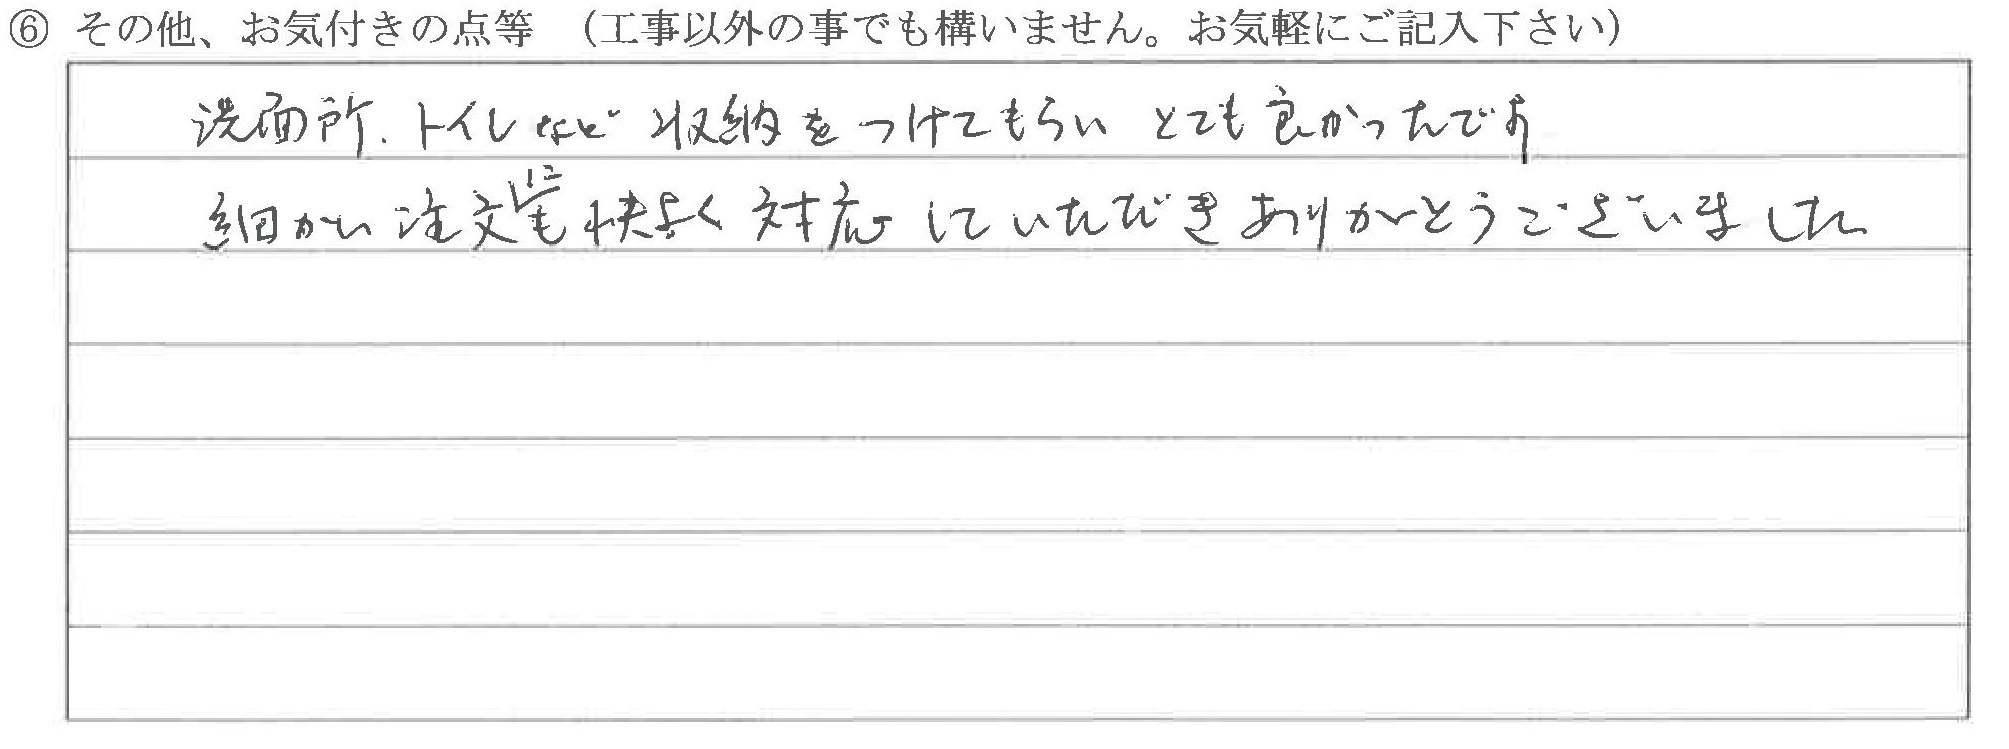 ⑥ その他、お気付きの点等 (工事以外の事でも構いません。お気軽にご記入下さい)
洗面所、トイレなど 収納をつけてもらい とても良かったです
細かい注文にも快よく対応していただきありがとうございました